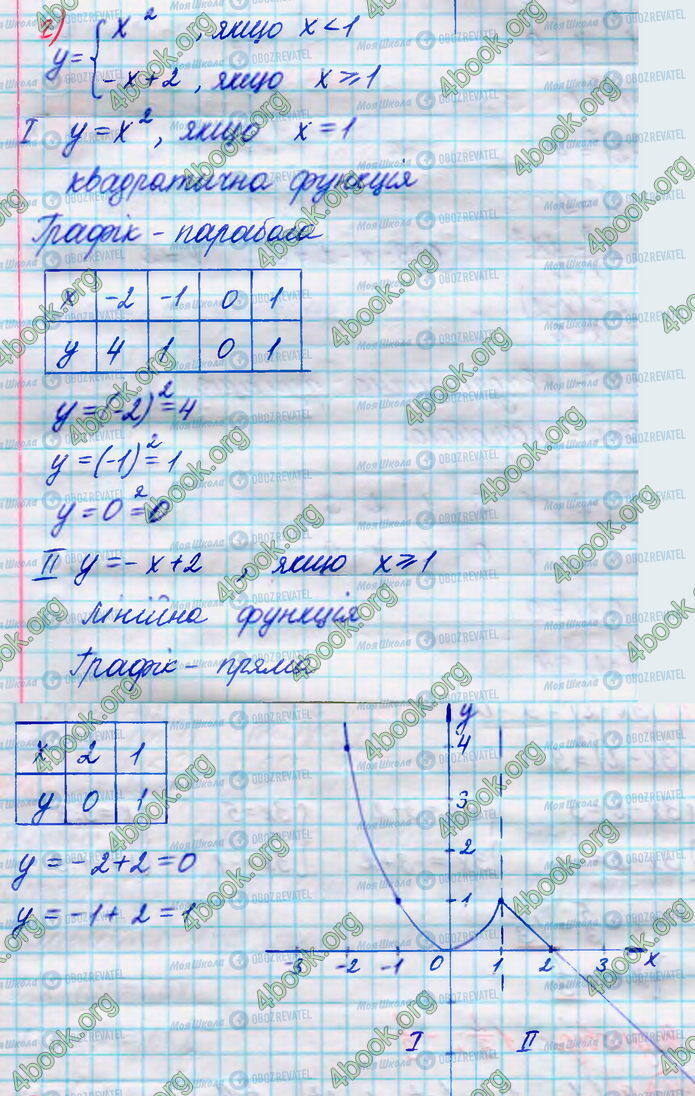 2)
y = { x², якщо x < 1
-x+2, якщо x ⩾ 1
I y = x², якщо x = 1
квадратична функція
Графік - парабола
x -2 -1 0 1
y 4 1 0 1
y = (-2)² = 4
y = (-1)² = 1
y = 0² = 0
II y = -x+2, якщо x ⩾ 1
лінійна функція
Графік - пряма
x 2 1
y 0 1
y = -2+2 = 0
y = -1+2 = 1
y
4
3
2
1
-3 -2 -1 0 1 2 3 x
I II
4book.org
МояШкола OBOZREVATEL